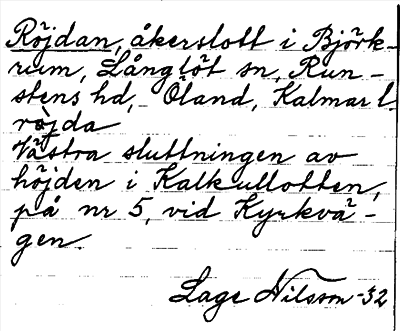 Röjdan, åkerslott i Björk-
rum, Långlöt sn, Run-
stens hd, Öland, Kalmar l.
röjda
Västra sluttningen av
höjden i Kalkullotten,
på nr 5, vid Kyrkvä-
gen.
Lage Nilsson -32